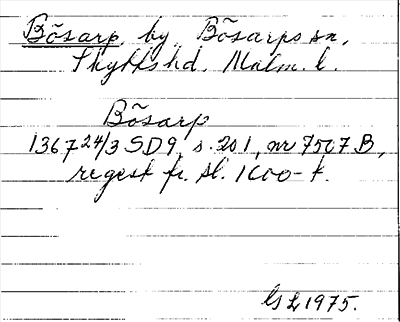 Bösarp, by, Bösarps sn,
Skytts hd, Malm. l.
Bösarp
1367 24/3 SD 9, s. 201, nr 7507 B,
regest fr. sl. 1600-t.
GL 1975.